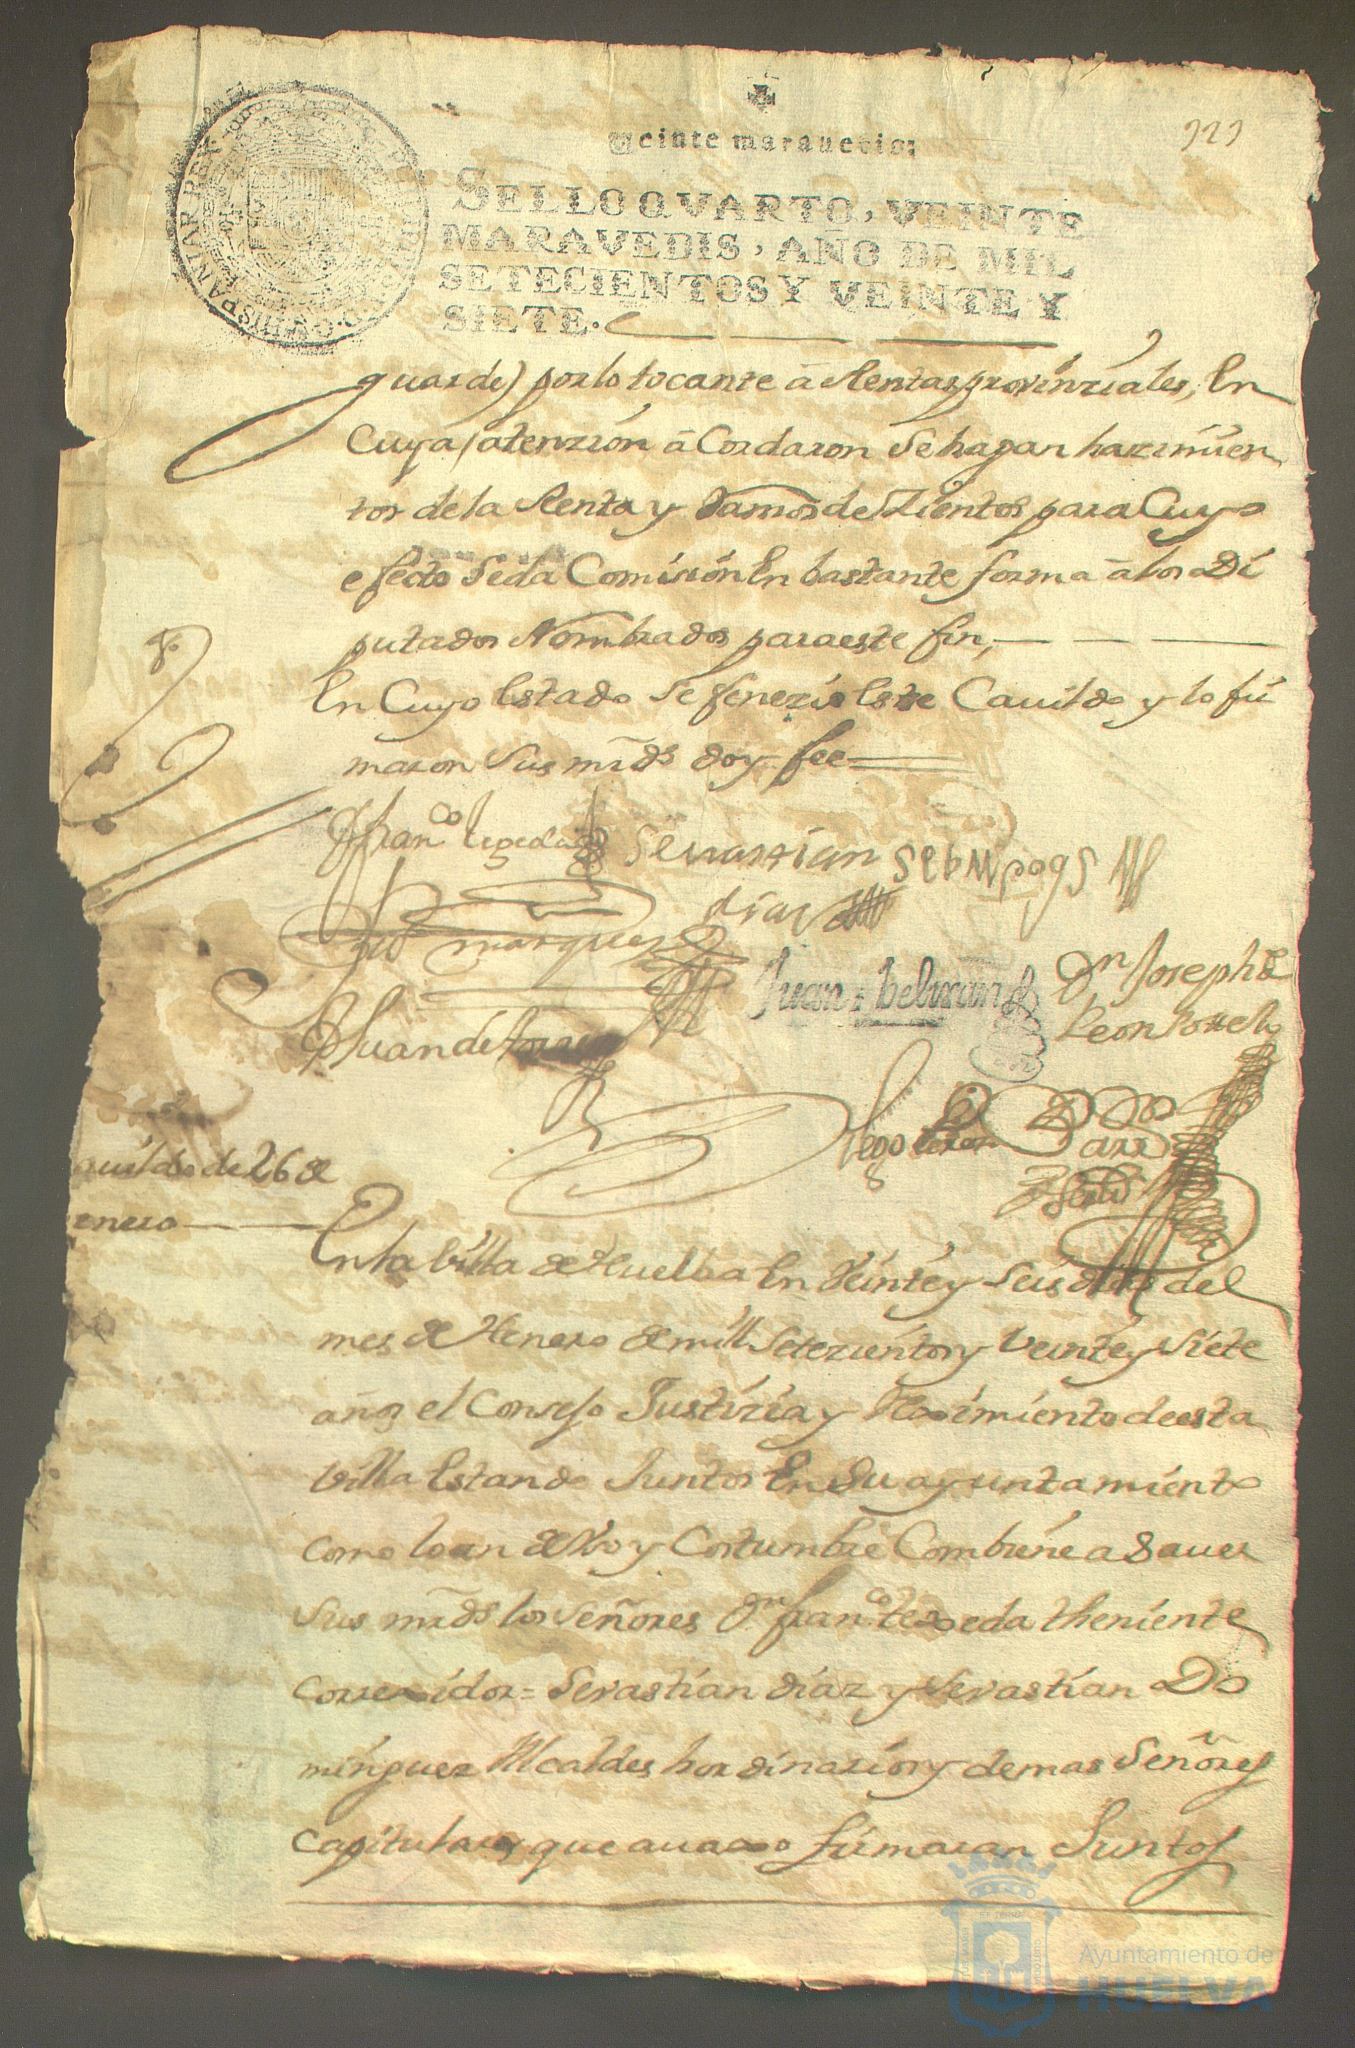 Veinte marauedis;
SELLO QVARTO, VEINTE
MARAVEDIS, AÑO DE MIL
SETECIENTOS Y VEINTE Y
SIETE.
HISPANIAR REX
guarde) por lo tocante â Rentas provinziales, En
Cuya atenzion â Cordaron Se hagan hazimien
tos de la Renta y Ramos de Zientos para Cuyo
efecto Se da Comision En bastante forma â los Di
putados Nombrados para este fin,
En Cuyo Estado Se fenezio Este Cauildo y lo fir
maron Sus mrds doy fee
Dn franco tegeda
Sevastian
dias
marques
Juan beltran
Dn Joseph de
Leon
Juan de torres
Diego
auildo de 26 de
enero
En la billa de Huelba En Veinte y Seis dias del
mes de Henero de mill Setezientos y Veinte y Siete
años el Consejo Justizia y Reximiento de esta
billa Estando Juntos En Su ayuntamiento
como lo an de Vso y Costumbre Combiene a Sauer
Sus mrds los Señores Dn franco texeda theniente
correxidor = Sevastian diaz y Sevastian Do
minguez Alcaldes hordinarios y demas Señores
capitulares que auaxo firmaran Juntos
Ayuntamiento de
HUELVA